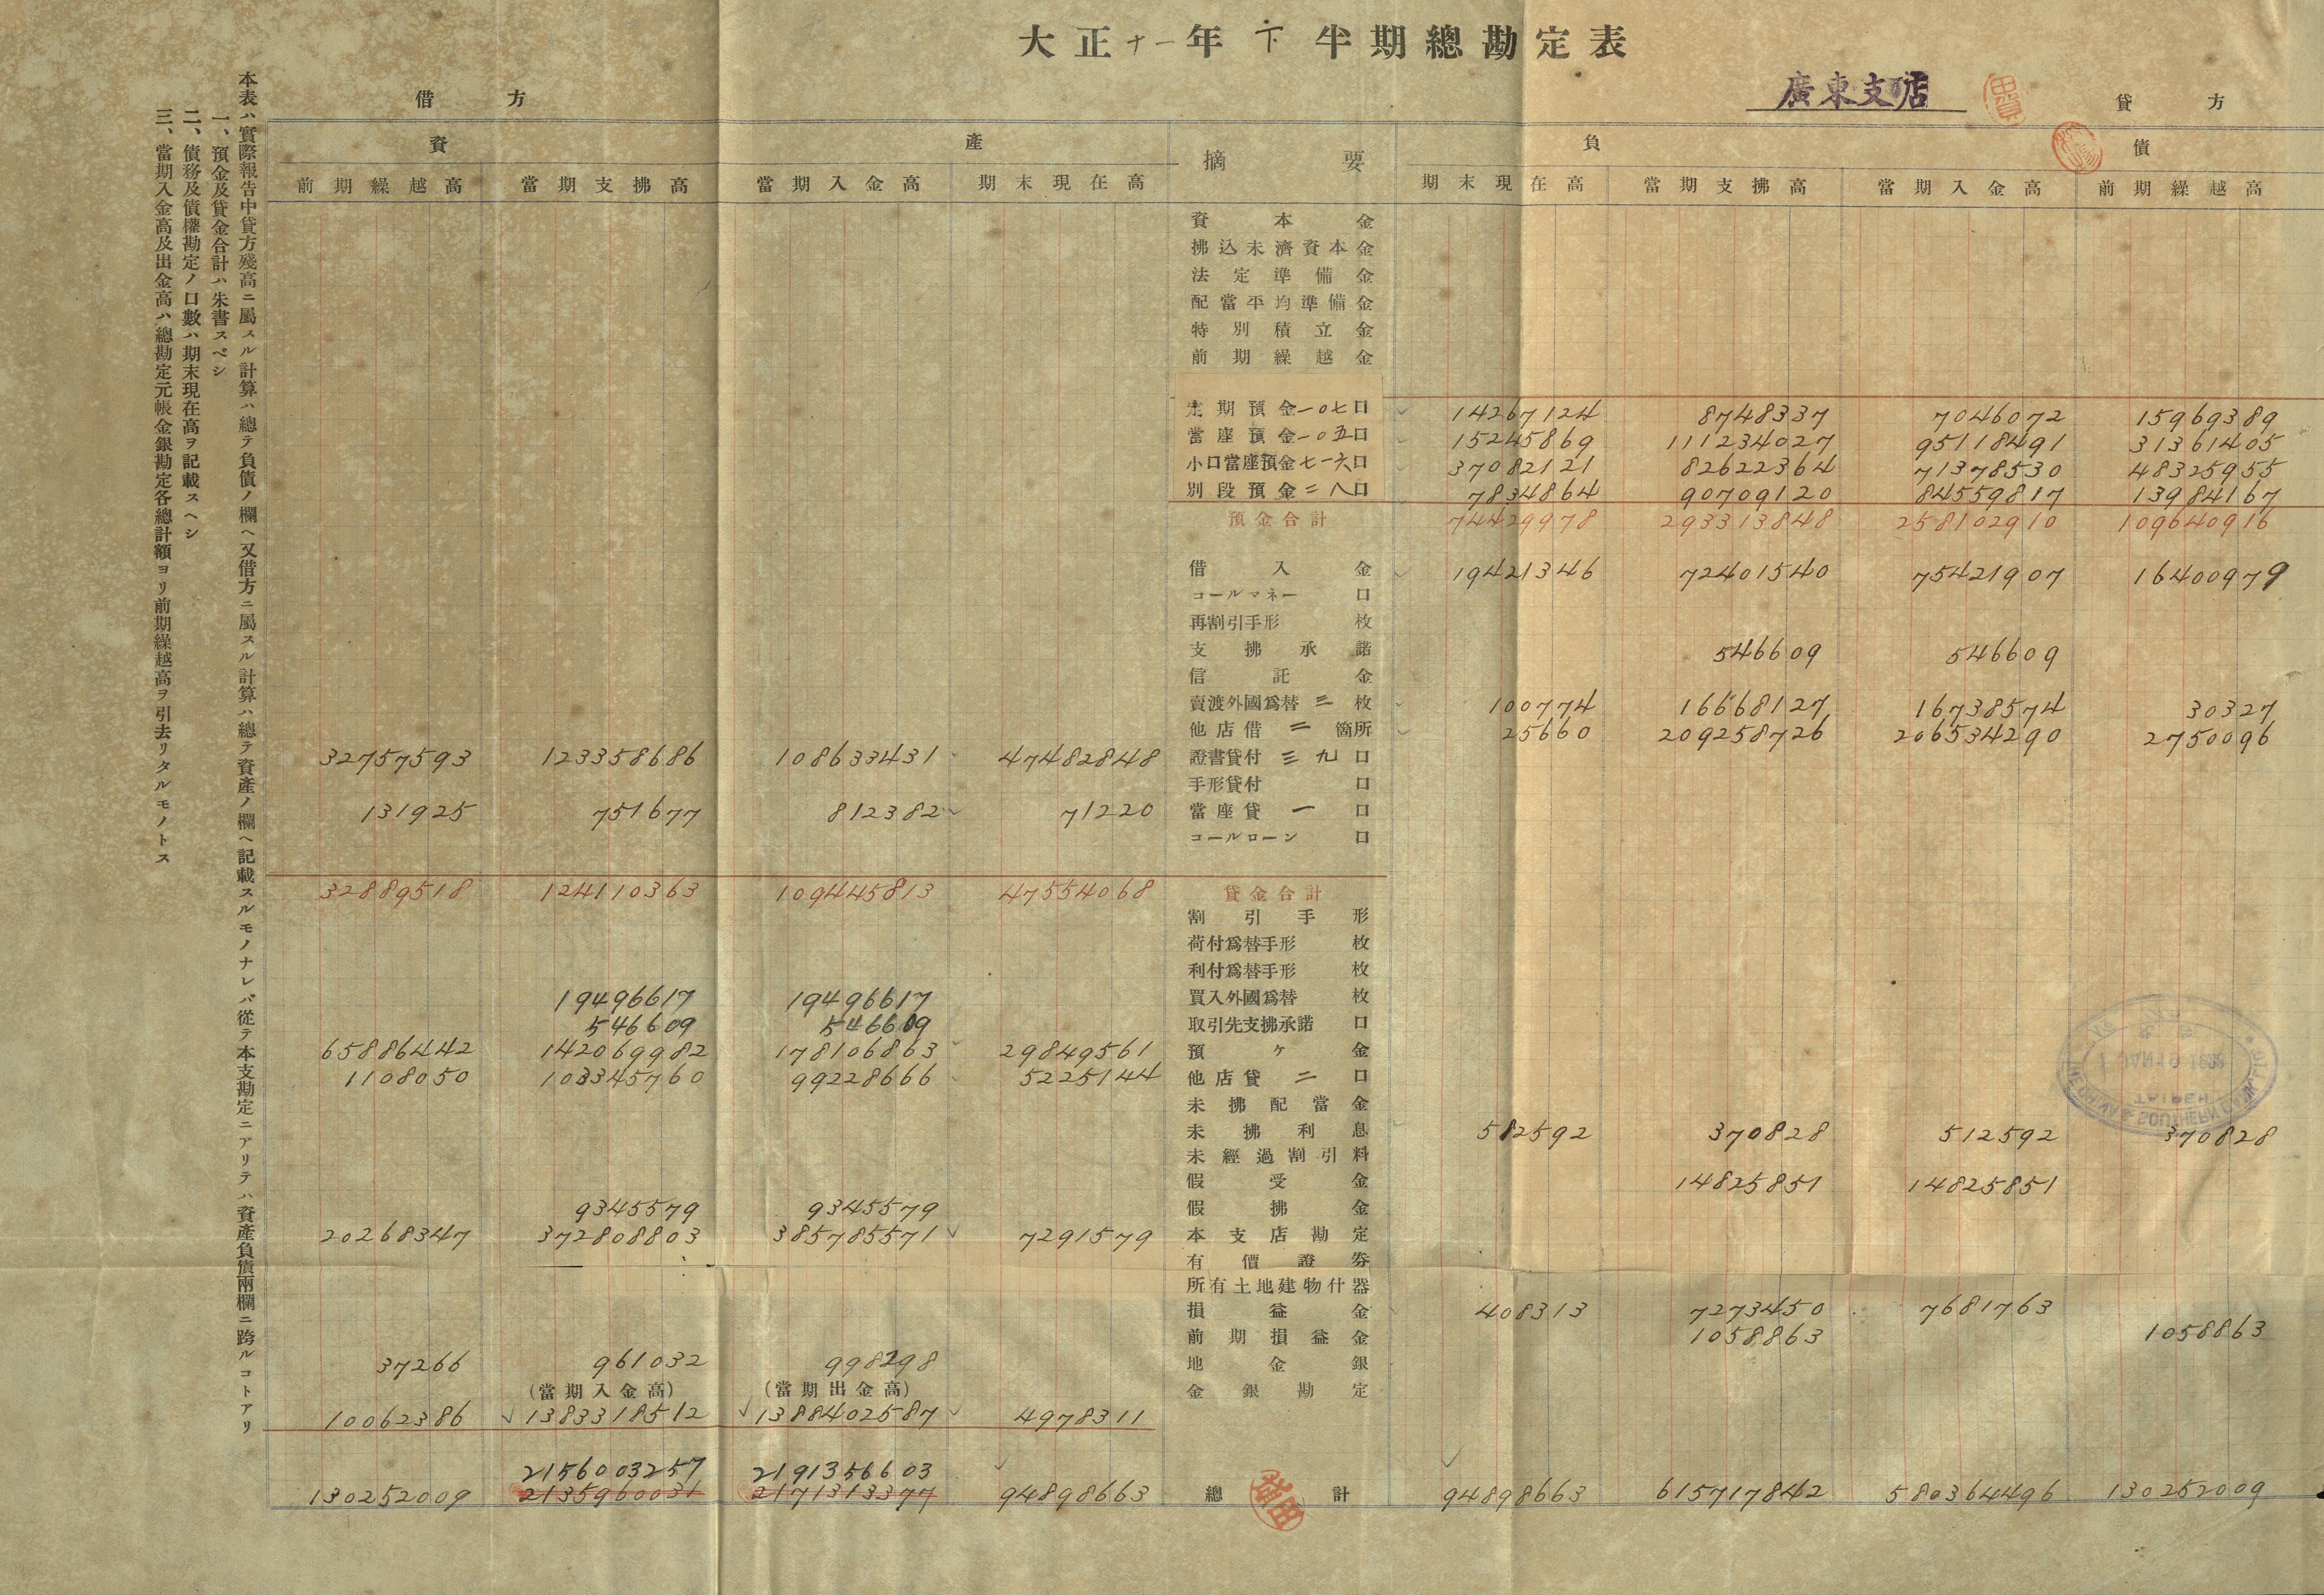 大正十一年下半期總勘定表
廣東支店
借方 貸方
資產 摘要 負債
前期繰越高 當期支拂高 當期入金高 期末現在高 期末現在高 當期支拂高 當期入金高 前期繰越高
資本金
拂込未濟資本金
法定準備金
配當平均準備金
特別積立金
前期繰越金
定期預金一〇七口 14267124 8748337 7046072 15969389
當座預金一〇五口 15245869 111234027 95118491 31361405
小口當座預金七一六口 37082121 82622364 71378530 48325955
別段預金二八口 7834864 90709120 84559817 13984167
預金合計 74429978 293313848 258102910 109640916
借入金 19421346 72401540 75421907 16400979
コールマネー 口
再割引手形 枚
支拂承諾 546609 546609
信託金
賣渡外國爲替 三 枚 100774 16668127 16738574 30327
他店借 二 箇所 25660 209258726 206534290 2750096
32757593 123358686 108633431 47482848 證書貸付 三九 口
手形貸付 口
131925 751677 812382 71220 當座貸 一 口
コールローン 口
32889518 124110363 109445813 47554068 貸金合計
割引手形
荷付爲替手形 枚
利付爲替手形 枚
19496617 19496617 買入外國爲替 枚
546609 546609 取引先支拂承諾 口
65886442 142069982 178106863 29849561 預ケ金
1108050 103345760 99228666 5225144 他店貸 二 口
未拂配當金
未拂利息 582592 370828 512592 370828
未經過割引料
假受金 14825851 14825851
9345579 9345579 假拂金
20268347 372808803 385785571 7291579 本支店勘定
有價證券
所有土地建物什器
損益金 408313 7273450 7681763
前期損益金 1058863 1058863
37266 961032 998298 地金銀
(當期入金高) (當期出金高) 金銀勘定
10062386 1383318512 1388402587 4978311
2156003257 2191356603
130252009 2135960031 2171313377 94898663 總計 94898663 615717842 580364496 130252009
本表ハ實際報告中貸方殘高ニ屬スル計算ハ總テ負債ノ欄ヘ又借方ニ屬スル計算ハ總テ資產ノ欄ヘ記載スルモノナレバ從テ本支勘定ニアリテハ資產負債兩欄ニ跨ルコトアリ
一、預金及貸金合計ハ朱書スベシ
二、債務及債權勘定ノ口數ハ期末現在高ヲ記載スヘシ
三、當期入金高及出金高ハ總勘定元帳金銀勘定各總計額ヨリ前期繰越高ヲ引去リタルモノトス